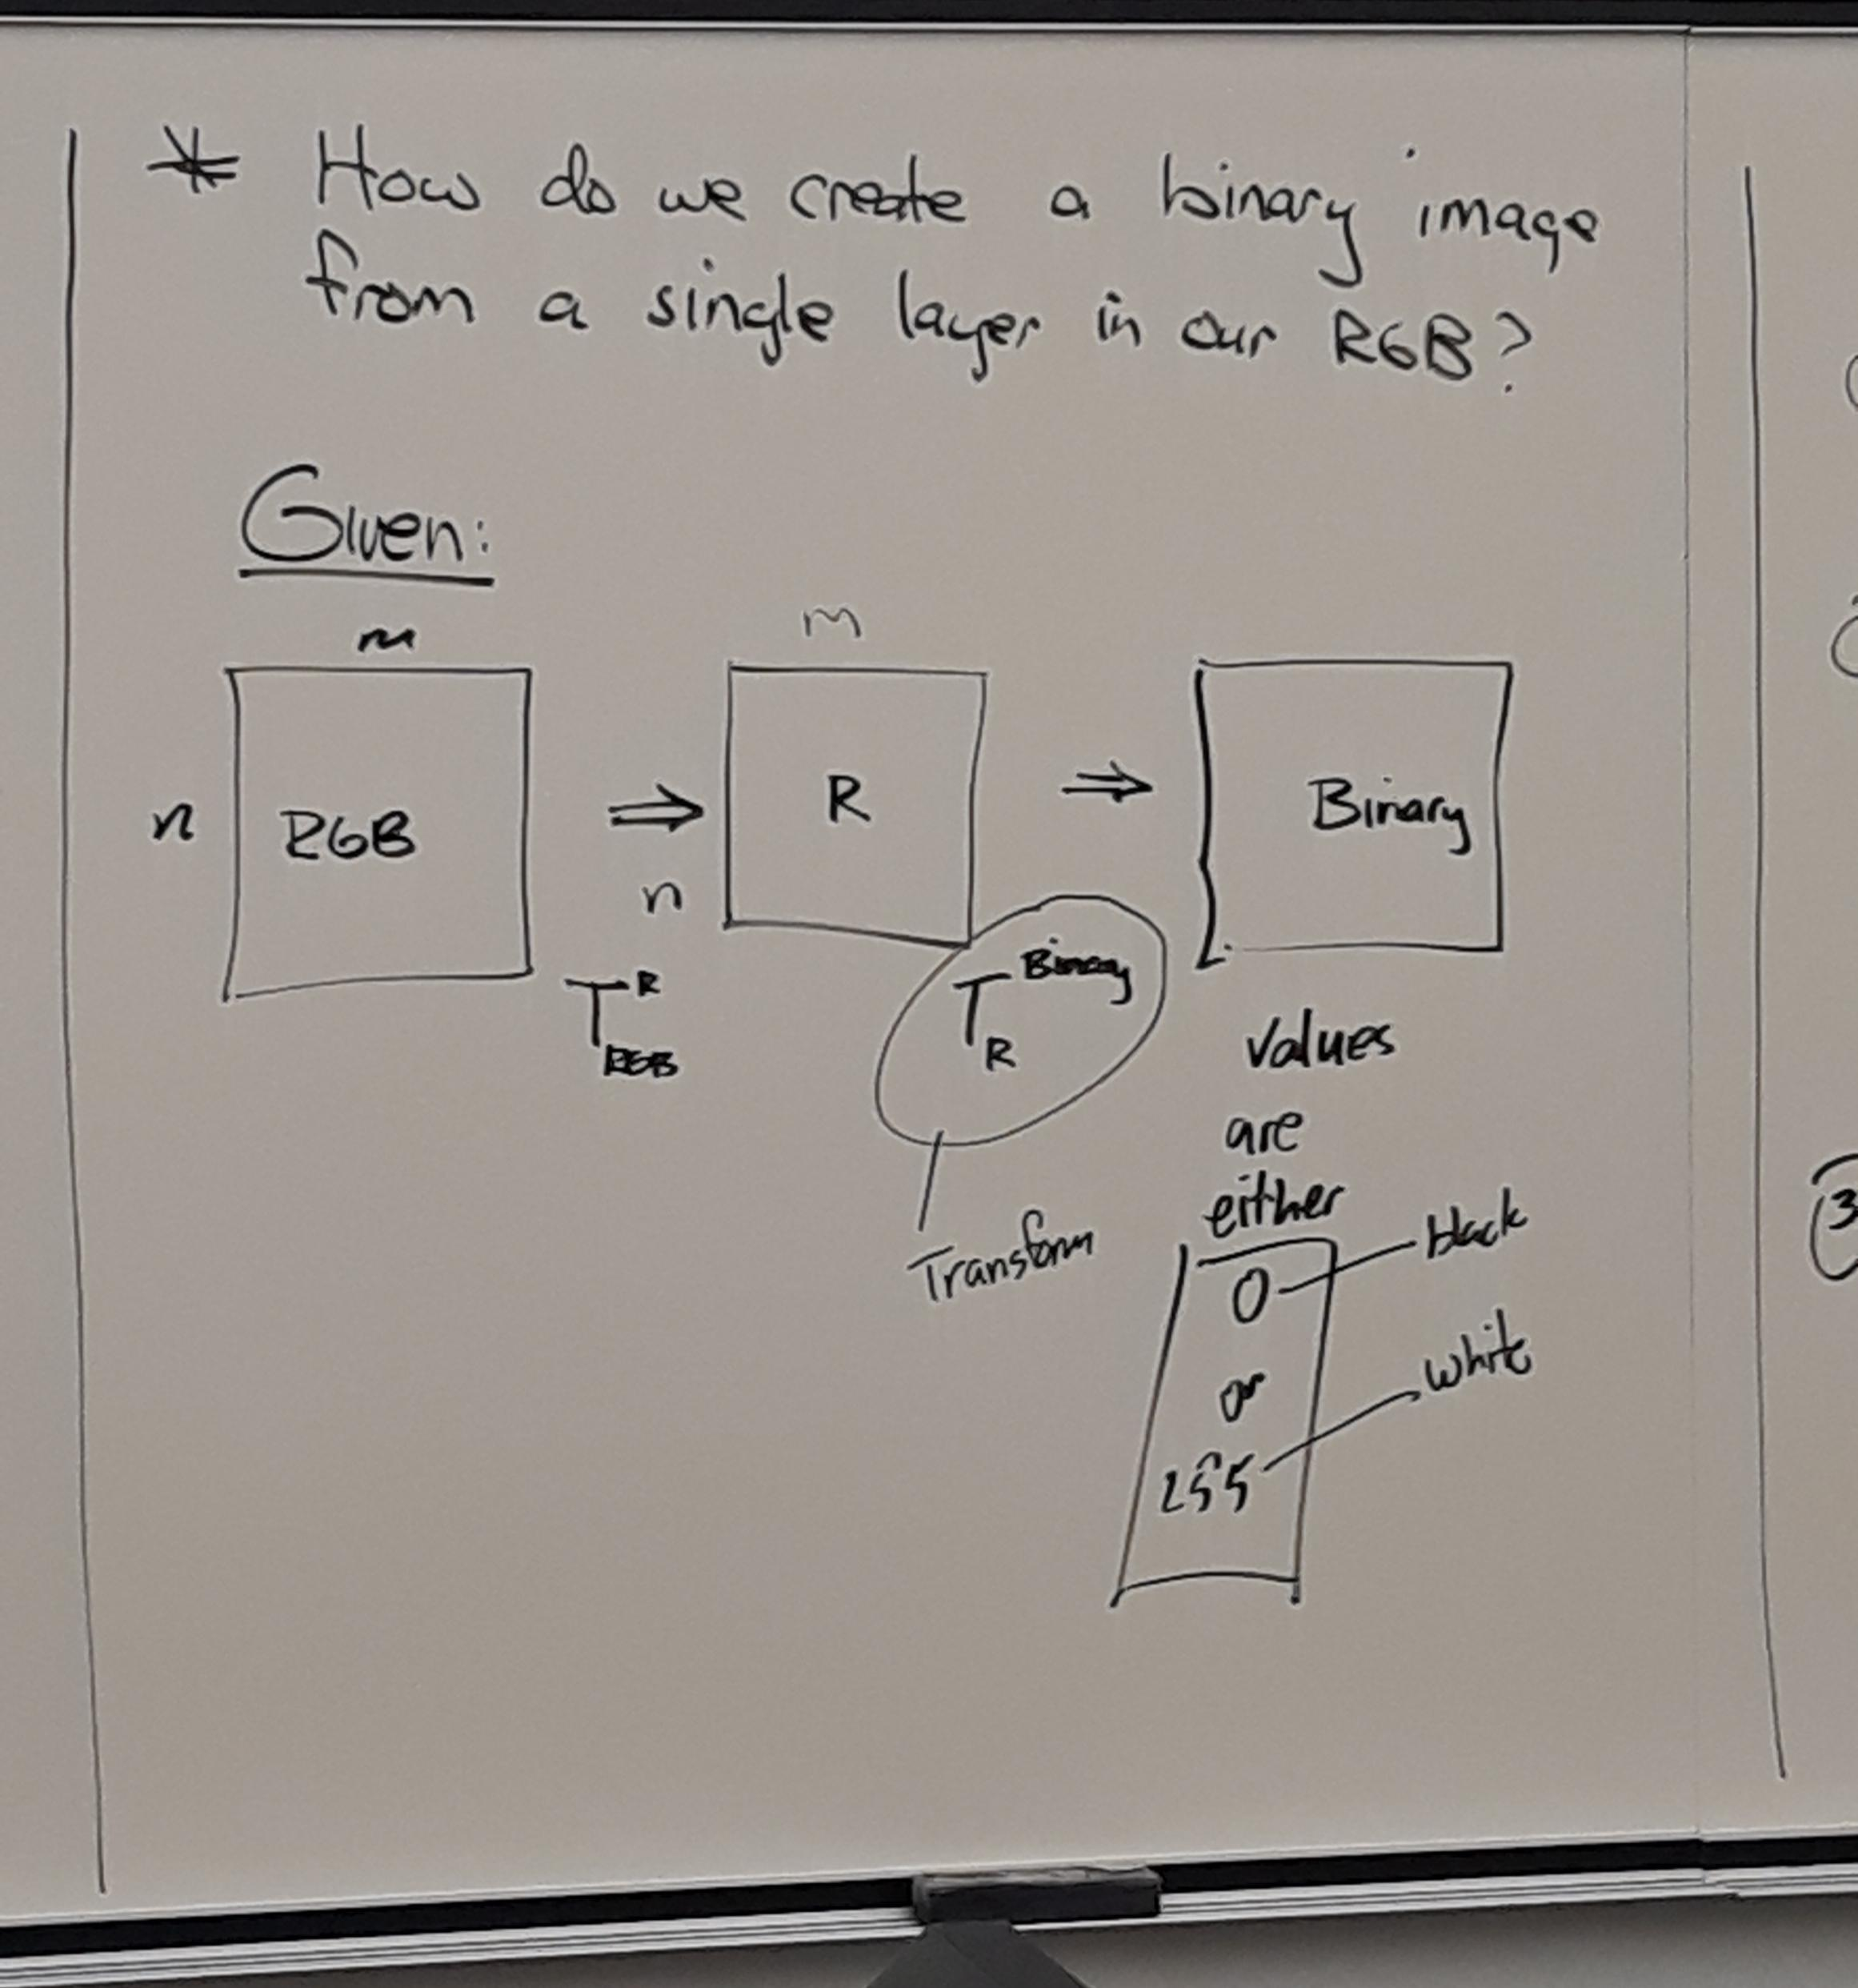 * How do we create a binary image
from a single layer in our RGB?
Given:
m
m
n
RGB
⇒
R
⇒
Binary
n
T^R_RGB
T^Binary_R
Transform
values
are
either
0
black
or
255
white
3